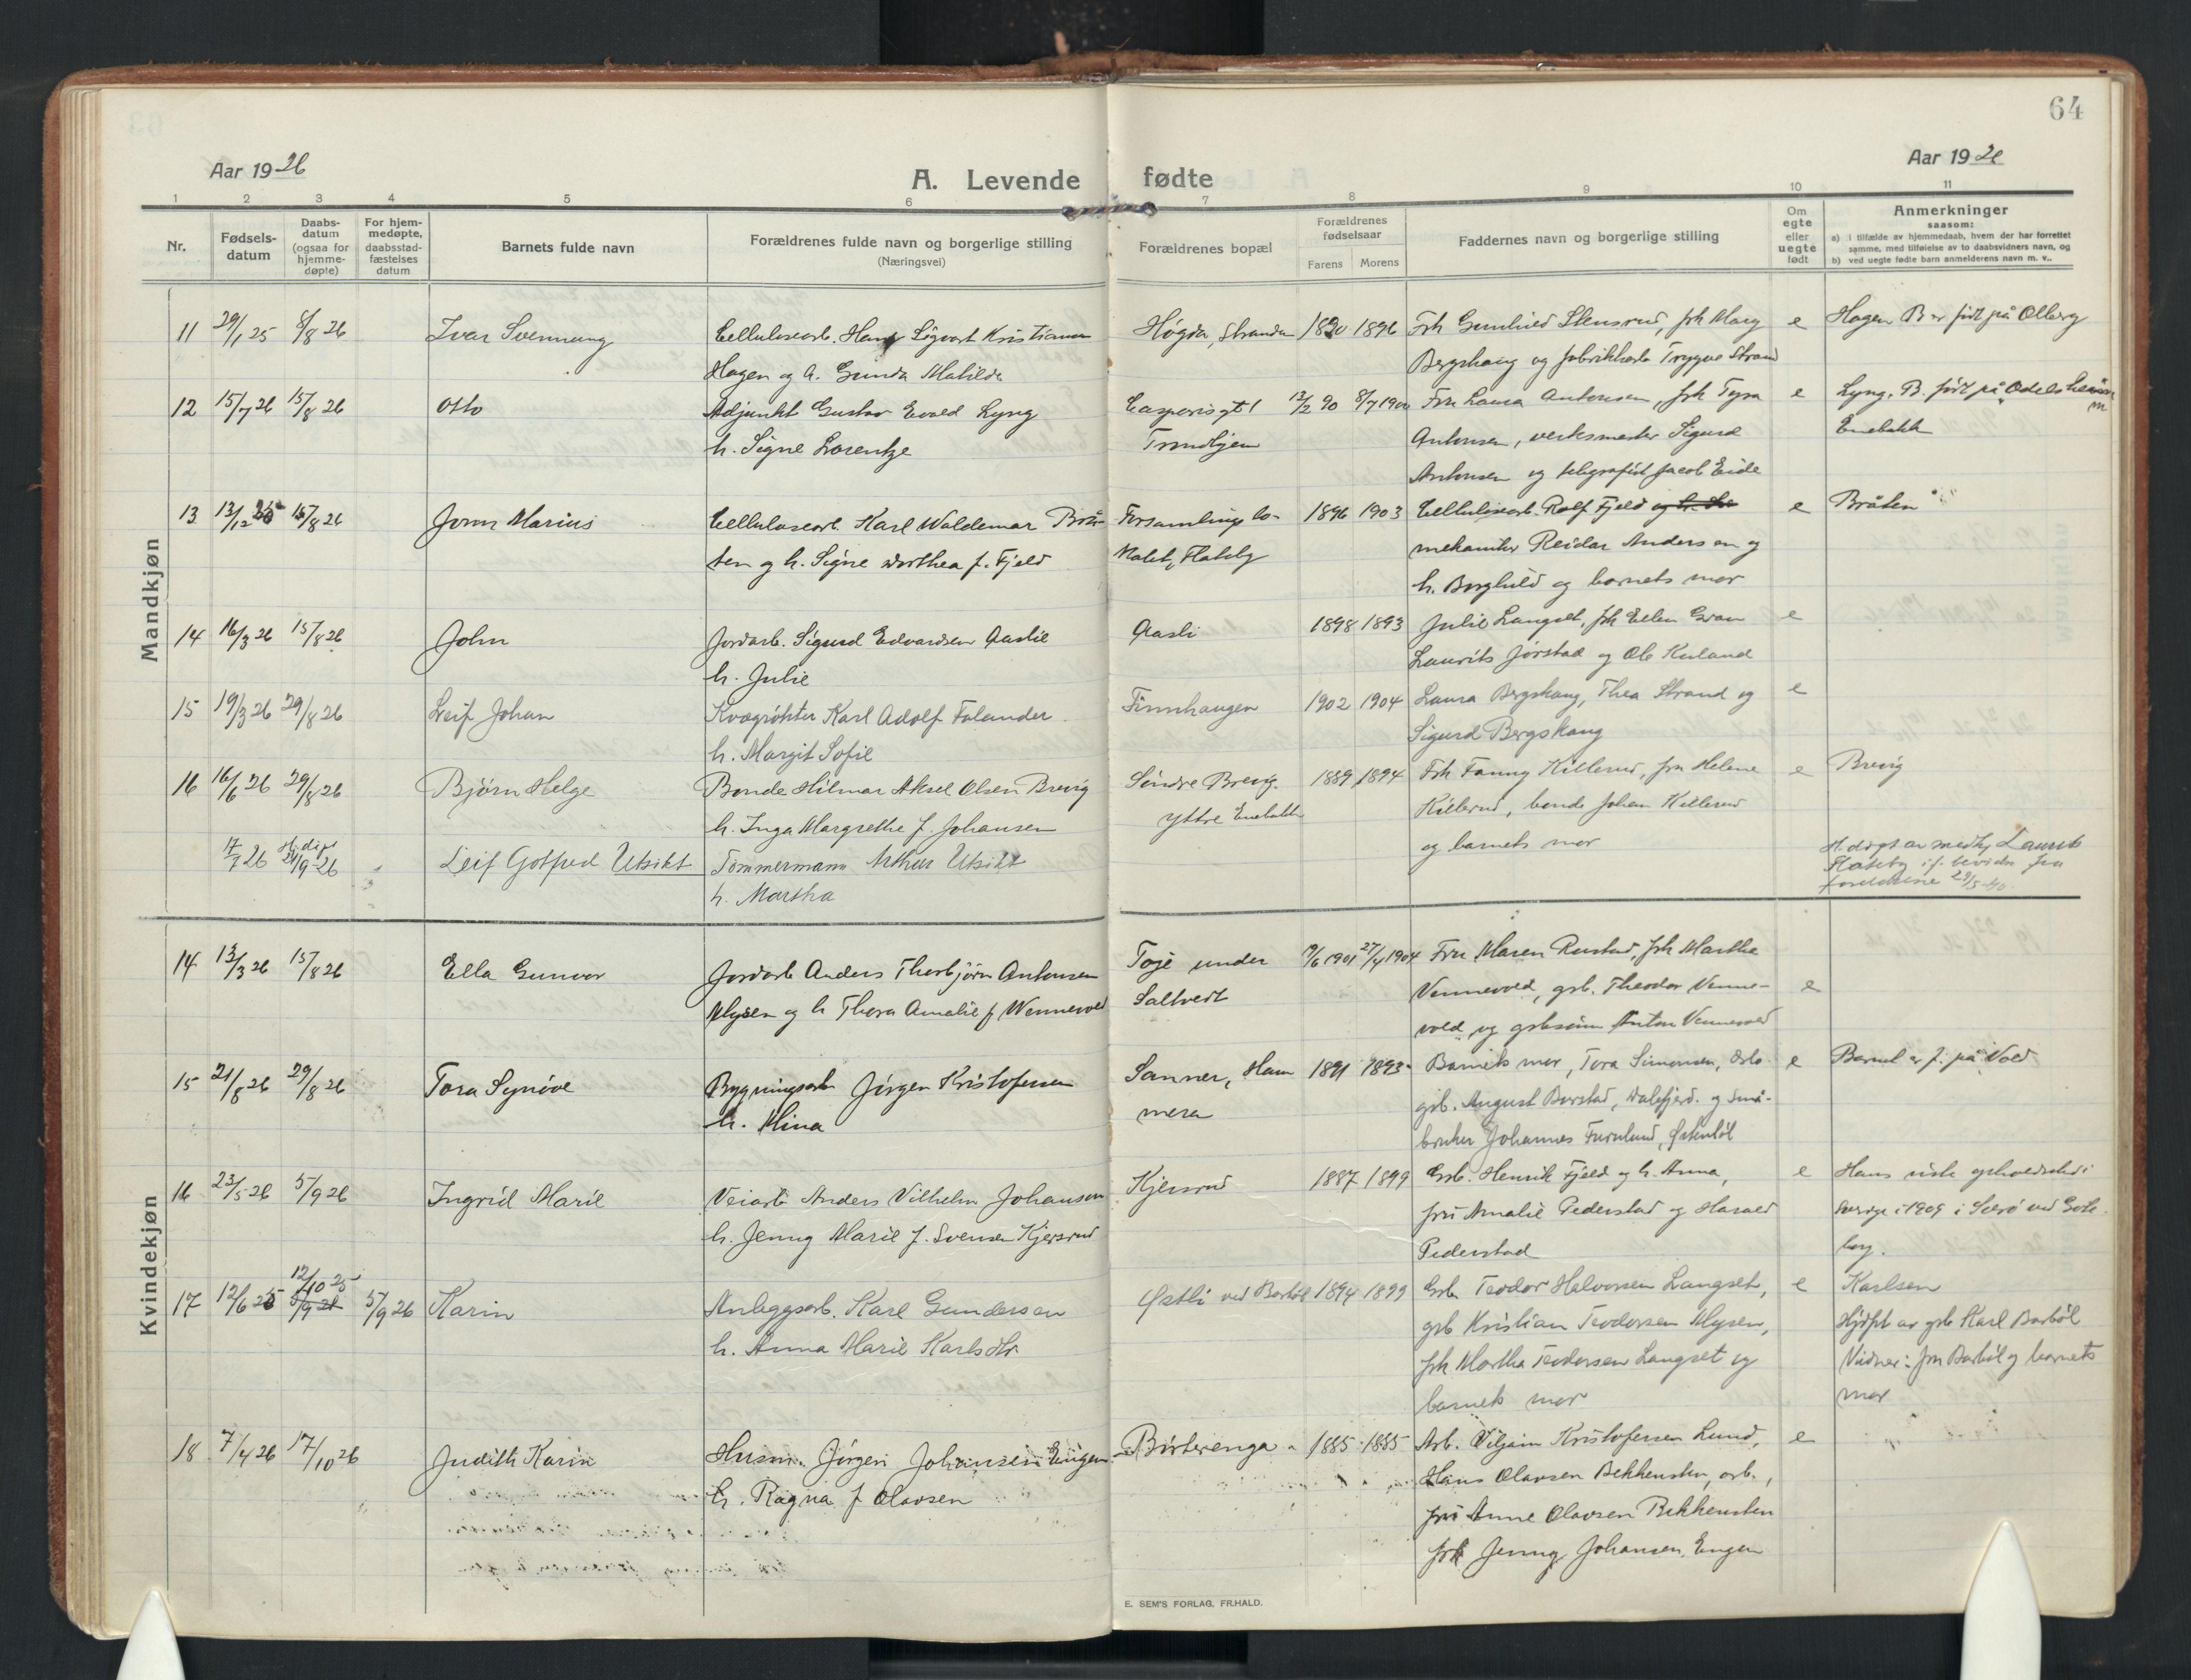 64
Aar 1926
Aar 1926
A. Levende fødte
1 2 3 4 5 6 7 8 9 10 11
Nr.
Fødsels-
datum
Daabs-
datum
(ogsaa for
hjemme-
døpte)
For hjem-
medøpte,
daabsstad-
fæstelses
datum
Barnets fulde navn
Forældrenes fulde navn og borgerlige stilling
(Næringsvei)
Forældrenes bopæl
Forældrenes
fødselsaar
Farens Morens
Faddernes navn og borgerlige stilling
Om
egte
eller
uegte
født
Anmerkninger
saasom:
a) i tilfælde av hjemmedaab, hvem der har forrettet
samme, med tilføielse av to daabsvidners navn, og
b) ved uegte fødte barn anmelderens navn m. v..
Mandkjøn
11 29/1 25 8/8 26 Ivar Svennung Cellulosearb. Hans Sigvart Kristiansen Høgda, Stranda 1890 1896 Frk Gunhild Stensrud, frk Marg e Hagen B er født på Olberg
Hagen og h. Gunda Matilda Bergskaug og fabrikkarb Trygve Strand
12 15/7 26 15/8 26 Otto Adjunkt Gustav Evald Lyng Casparisgt 1 13/2 90 8/7 1900 Fru Laura Antonsen, frk Tyra e Lyng. B. født på
h. Signe Lorentze Trondhjem Antonsen, verksmester Sigurd Enebakk
Antonsen og telegrafist Jacob Eide
13 13/12 25 15/8 26 Jonn Marius Cellulosearb Karl Waldemar Brå- Forsamlingslo- 1896 1903 Cellulosearb. Rolf Fjeld og h. e Bråten
ten og h. Signe Dorthea f. Fjeld kalet, Flateby mekaniker Reidar Andersen og
h. Borghild og barnets mor
14 16/3 26 15/8 26 John Jordarb. Sigurd Edvardsen Aaslie Aasli 1898 1893 Julie Langset, frk Ellen Gran e
h. Julie Laurits Jørstad og Ole Kuland
15 19/3 26 29/8 26 Leif Johan Kvægrøkter Karl Adolf Falander Finnhaugen 1902 1904 Laura Bergskaug, Thea Strand og e
h. Margit Sofie Sigurd Bergskaug
16 16/6 26 29/8 26 Bjørn Helge Bonde Hilmar Aksel Olsen Brevig Søndre Brevig. 1889 1894 Frk Fanny Killerud, fru Helene e Brevig
h. Inga Margrethe f. Johansen Yttre Enebakk Killerud, bonde Johan Killerud
og barnets mor
17/7 26 Hj.døpt 24/9 26 Leif Gotfred Utsikt Tømmermann Arthur Utsikt H.døpt av Laurits
h. Martha Flateby
foreldrene 29/5-40.
Kvindekjøn
14 13/3 26 15/8 26 Ella Gunvor Jordarb Anders Thorbjørn Antonsen Toje under 19/6 1901 27/4 1904 Fru Maren Rustad, frk Marthe
Mysen og h Thora Amalie f Wennevold Saltvedt Vennevold, grb. Theodor Venne- e
vold og grbsønn Anton Vennevold
15 21/8 26 29/8 26 Tora Synøve Bygningsarb Jørgen Kristofersen Sanner, Ham 1891 1893 Barnets mor, Tora Simonsen, Oslo. e Barnet er f. på Vold
h. Mina mera grb. August Børstad, Dalefjerd. og små-
bruker Johannes Furulund,
16 23/5 26 5/9 26 Ingrid Marie Veiarb Anders Vilhelm Johansen Kjersrud 1887 1899 Grb. Henrik Fjeld og h. Anna, e Hans siste opholdssted i
h. Jenny Marie f. Svensen Kjersrud fru Amalie Pederstad og Harald Sverige i 1909 i Sævø ved Gote-
Pederstad borg.
17 12/6 25 12/10 25 5/9 26 5/9 26 Karin Anleggsarb. Karl Gundersen Østli ved Barbøl 1894 1899 Grb Teodor Halvorsen Langset, e Karlsen
h. Anna Marie Karlsdtr grb Kristian Teodorsen Mysen, Hjdøpt av grb Karl Barbøl
frk Martha Teodorsen Langset og Vidner: fru Barbøl og barnets
barnets mor mor
18 7/4 26 17/10 26 Judith Karin Husm. Jørgen Johansen Engen Birterenga 1885 1885 Arb. Viljam Kristofersen Lund, e
h. Ragna f Olavsen Hans Olavsen Bekkensten, arb.,
fru Anne Olavsen Bekkensten
frk Jenny Johansen, Engen
E. SEM'S FORLAG, FR.HALD.